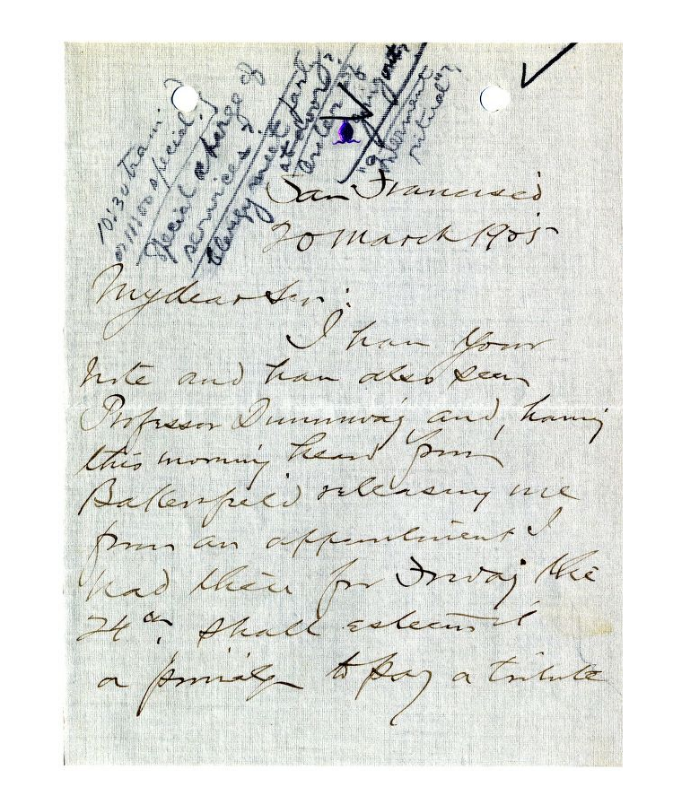 10:30 train
or 11:00 special?
Special charge of
services?
Clergy meet party
at door?
Order of
going out?
"Interment
ritual"?
San Francisco
20 March 1905
My dear Sir:
I have your
note and have also seen
Professor Dunnway and, having
this morning heard from
Bakersfield releasing me
from an appointment I
had there for Friday the
24th, shall esteem it
a privilege to pay a tribute